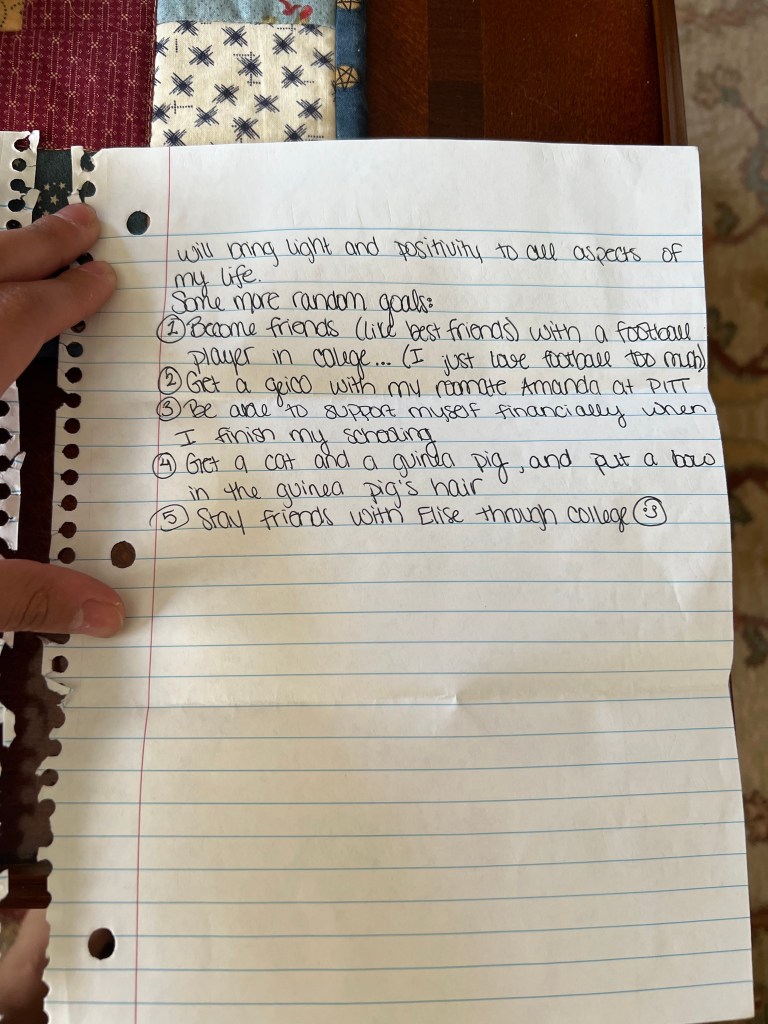 will bring light and positivity to all aspects of
my life.
Some more random goals:
① Become friends (like best friends) with a football
player in college... (I just love football too much)
② Get a geico with my roomate Amanda at PITT
③ Be able to support myself financially when
I finish my schooling
④ Get a cat and a guinea pig, and put a bow
in the guinea pig's hair
⑤ Stay friends with Elise through college